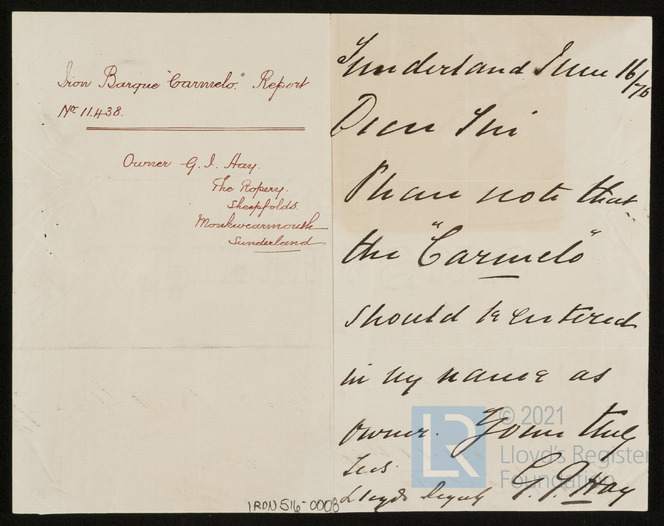 Iron Barque "Carmelo." Report
No. 11.438.
Owner G. I. Hay.
The Ropery.
Sheepfolds.
Monkwearmouth
Sunderland
Sunderland June 16/76
Dear Sir
Please note that
the "Carmelo"
should be entered
in my name as
owner. Yours truly
Secs.
Lloyds Regists G. I. Hay
IRON516-0008
LR
© 2021
Lloyd's Register
Foundation